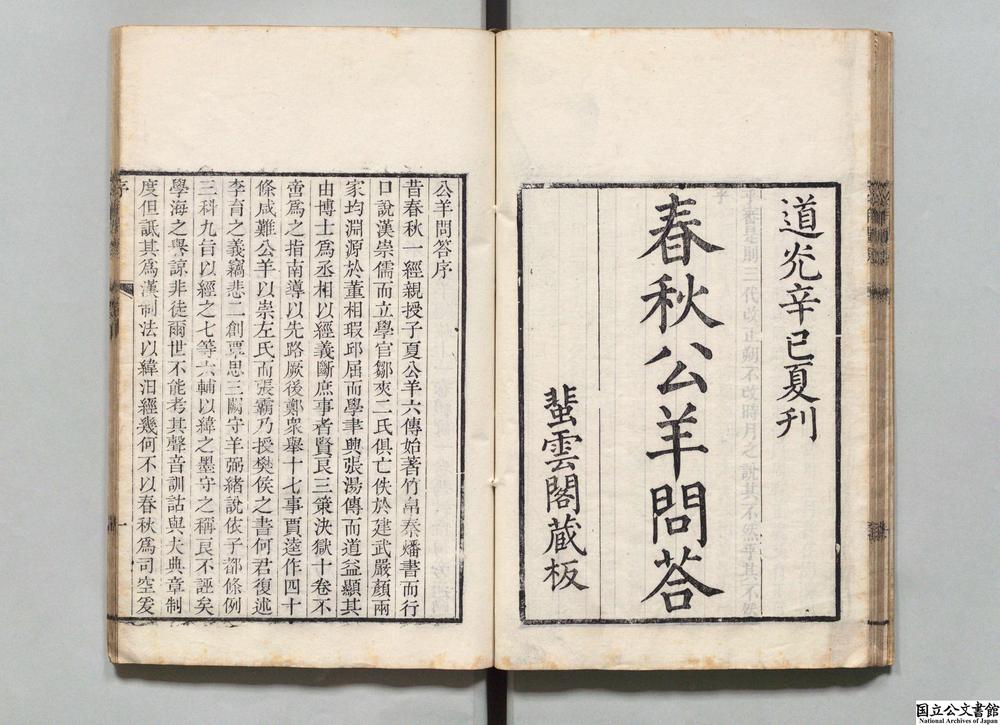 道光辛巳夏刊
春秋公羊問荅
蜚雲閣藏板
公羊問荅序
昔春秋一經親授子夏公羊六傳始著竹帛秦燔書而行
口說漢崇儒而立學官鄒夾二氏俱亡佚於建武嚴顏兩
家均淵源於董相瑕邱屈而學肀興張湯傳而道益顯其
由博士爲丞相以經義斷庶事者賢良三策決獄十卷不
啻爲之指南導以先路厥後鄭衆舉十七事賈逵作四十
條咸難公羊以崇左氏而張霸乃授樊侯之書何君復述
李育之義竊悲二創覃思三闕守羊弼緒說依子都條例
三科九旨以經之七等六輔以緯之墨守之稱良不誣矣
學海之譽諒非徒爾世不能考其聲音訓詁與大典章制
度但詆其爲漢制法以緯汨經幾何不以春秋爲司空爰
序
一
国立公文書館
National Archives of Japan